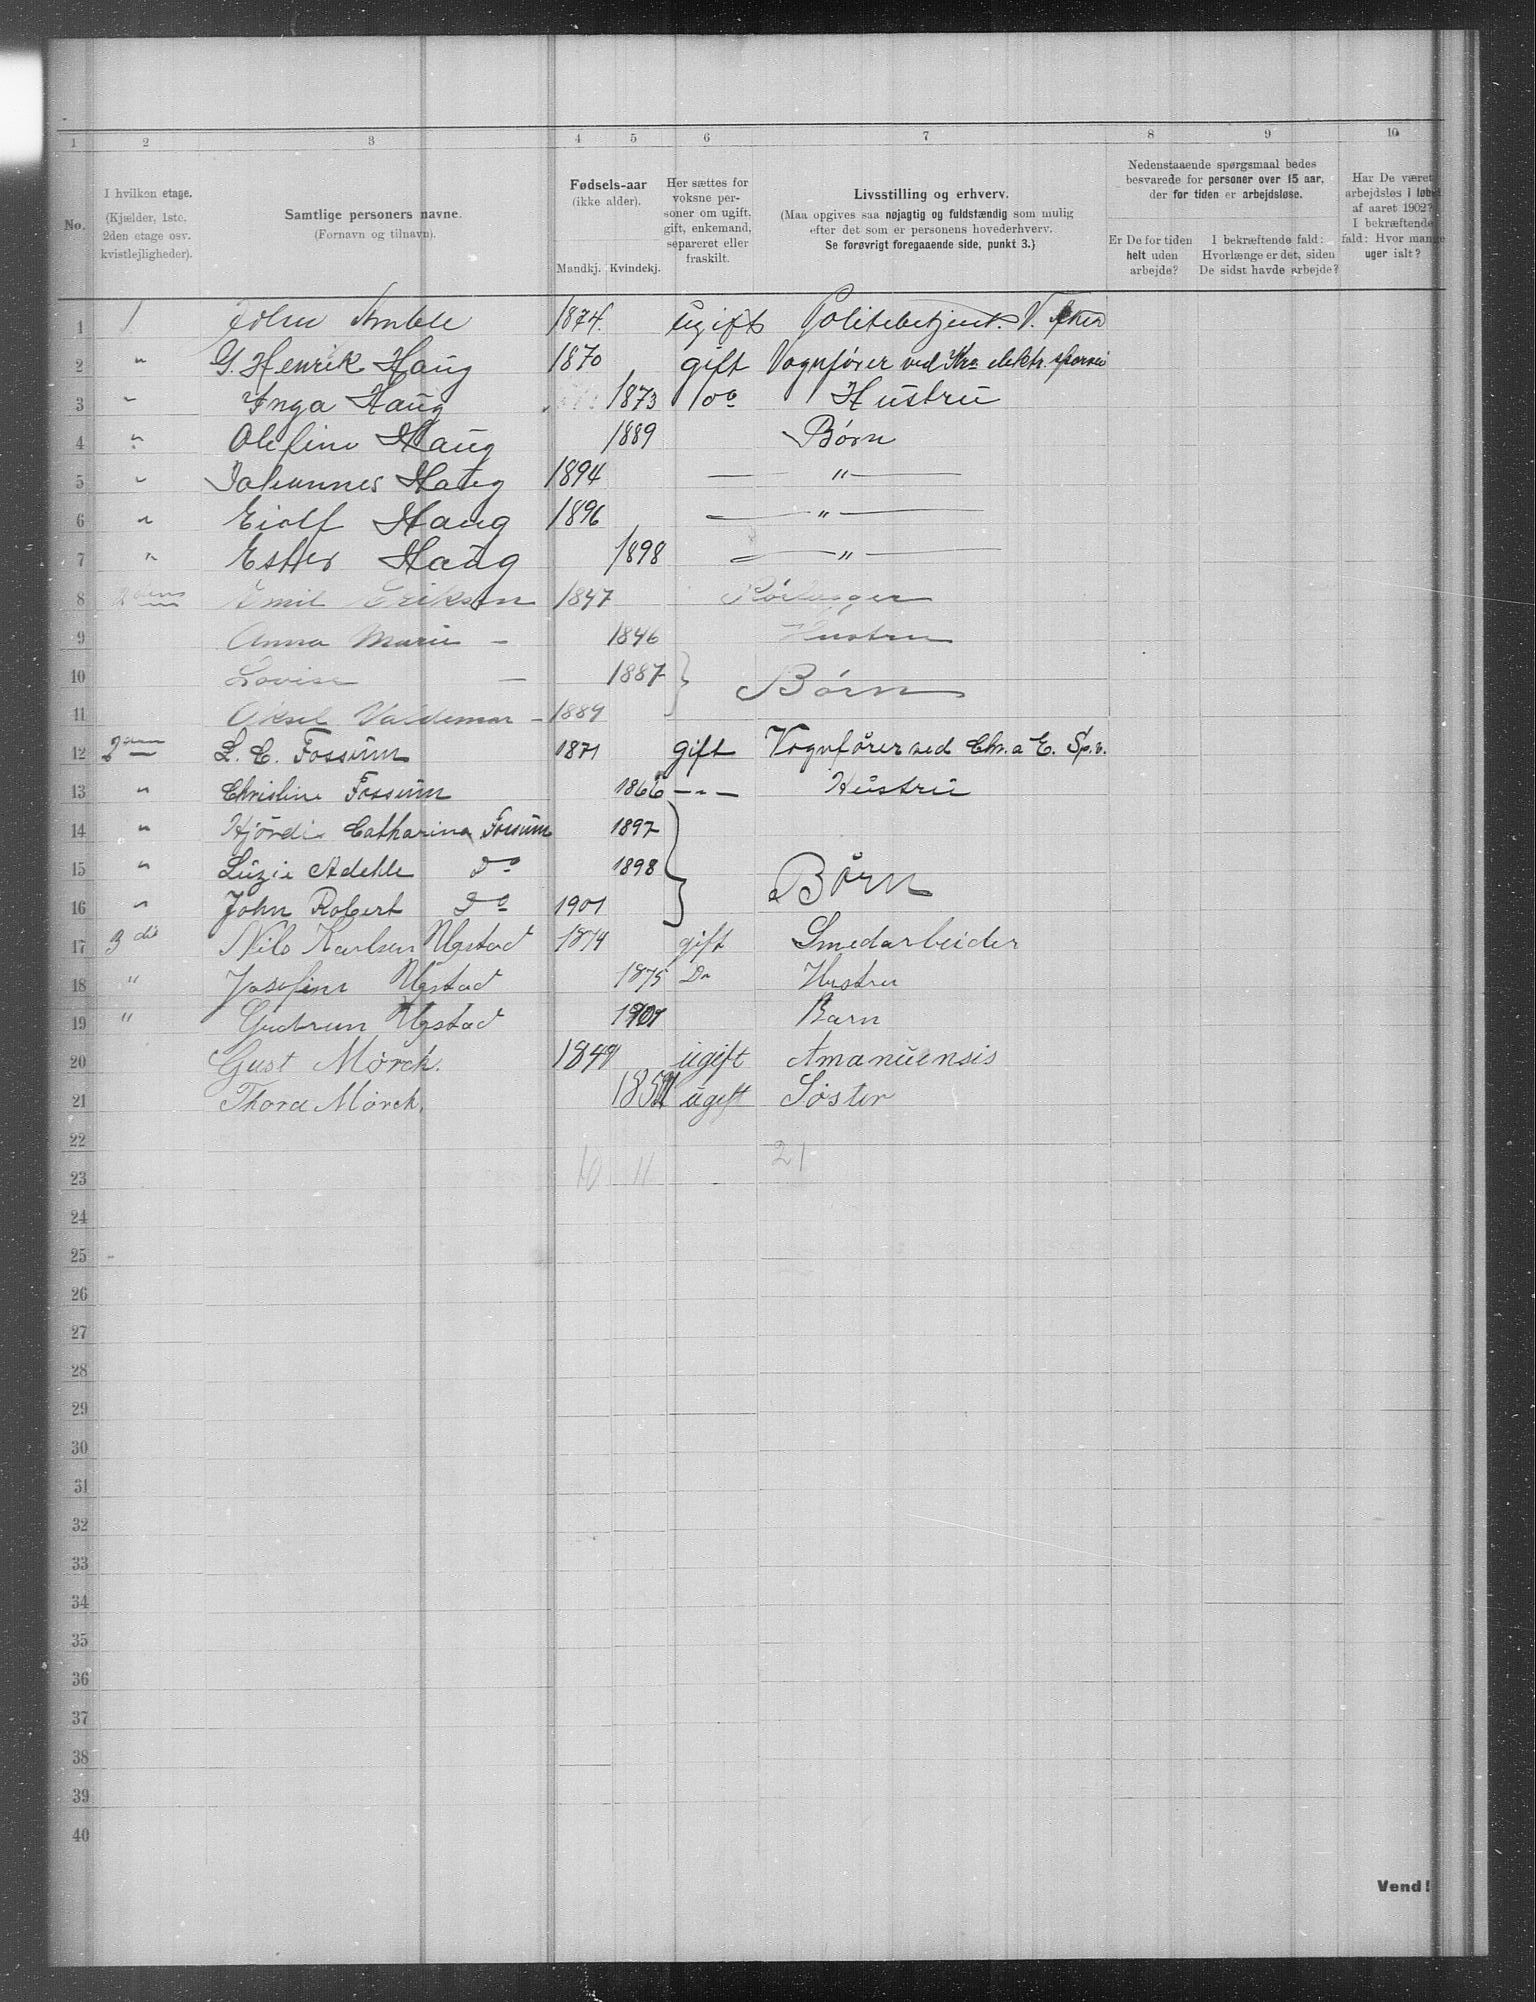 1 2 3 4 5 6 7 8 9 10
No.
I hvilken etage.
(Kjælder, 1ste.
2den etage osv.
kvistlejligheder).
Samtlige personers navne.
(Fornavn og tilnavn).
Fødsels-aar
(ikke alder).
Mandkj. Kvindekj.
Her sættes for
voksne per-
soner om ugift,
gift, enkemand,
separeret eller
fraskilt.
Livsstilling og erhverv.
(Maa opgives saa nøjagtig og fuldstændig som mulig
efter det som er personens hovederhverv.
Se forøvrigt foregaaende side, punkt 3.)
Nedenstaaende spørgsmaal bedes
besvarede for personer over 15 aar,
der for tiden er arbejdsløse.
Er De for tiden
helt uden
arbejde?
I bekræftende fald:
Hvorlænge er det, siden
De sidst havde arbejde?
Har De været
arbejdsløs i løbet
af aaret 1902?
I bekræftende
fald: Hvor mange
uger ialt?
1 1 John 1874. ugift Politebetjent. V. Aker
2 " G. Henrik Haug 1870 gift Vognfører ved Kra elektr. sporvei
3 " Inga Haug 1873 Do Hustru
4 " Olefine Haug 1889 Børn
5 " Johannes Haug 1894 — " —
6 " Eiolf Haug 1896 — " —
7 " Ester Haug 1898 — " —
8 2dens Emil Eriksen 1847 Rørlægger
9 Anna Marie — 1846 Hustru
10 Lovise — 1887 } Børn
11 Aksel Valdemar — 1889
12 2den L. E. Fossum 1871 gift Vognfører ved Chr.a E. Sp.v.
13 " Christine Fossum 1866 — " — Hustru
14 " Hjørdis Catharina Fossum 1897
15 " Luzie Adehle Do 1898 } Børn
16 " John Robert Do 1901
17 3die Nils Karlsen Ugstad 1874 gift Smedarbeider
18 " Josefine Ugstad 1875 Do Hustru
19 " Gudrun Ugstad 1901 Barn
20 Gust Mørch. 1849 ugift Amanuensis
21 Thora Mørch. ugift Søster
22
10 11 21
23
24
25
26
27
28
29
30
31
32
33
34
35
36
37
38
39
40
Vend!